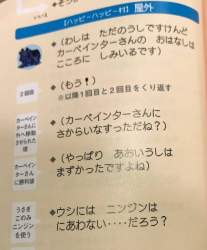 【ハッピーハッピー村】屋外
◆(わしは ただのうしですけんど
カーペインターさんの おはなしは
こころに しみいるです)
2回目
◆(もう!)
※以降1回目と2回目をくり返す
カーペイン
ターさんに
外へ移動
させられた
後
◆(カーペインターさんに
さからいなすっただね?)
カーペイン
ターさん
に勝利後
◆(やっぱり あおいうしは
まずかったですよね)
うさぎ
このみ
ニンジン
を使う
◆ウシには ニンジンは
にあわない‥‥だろう?